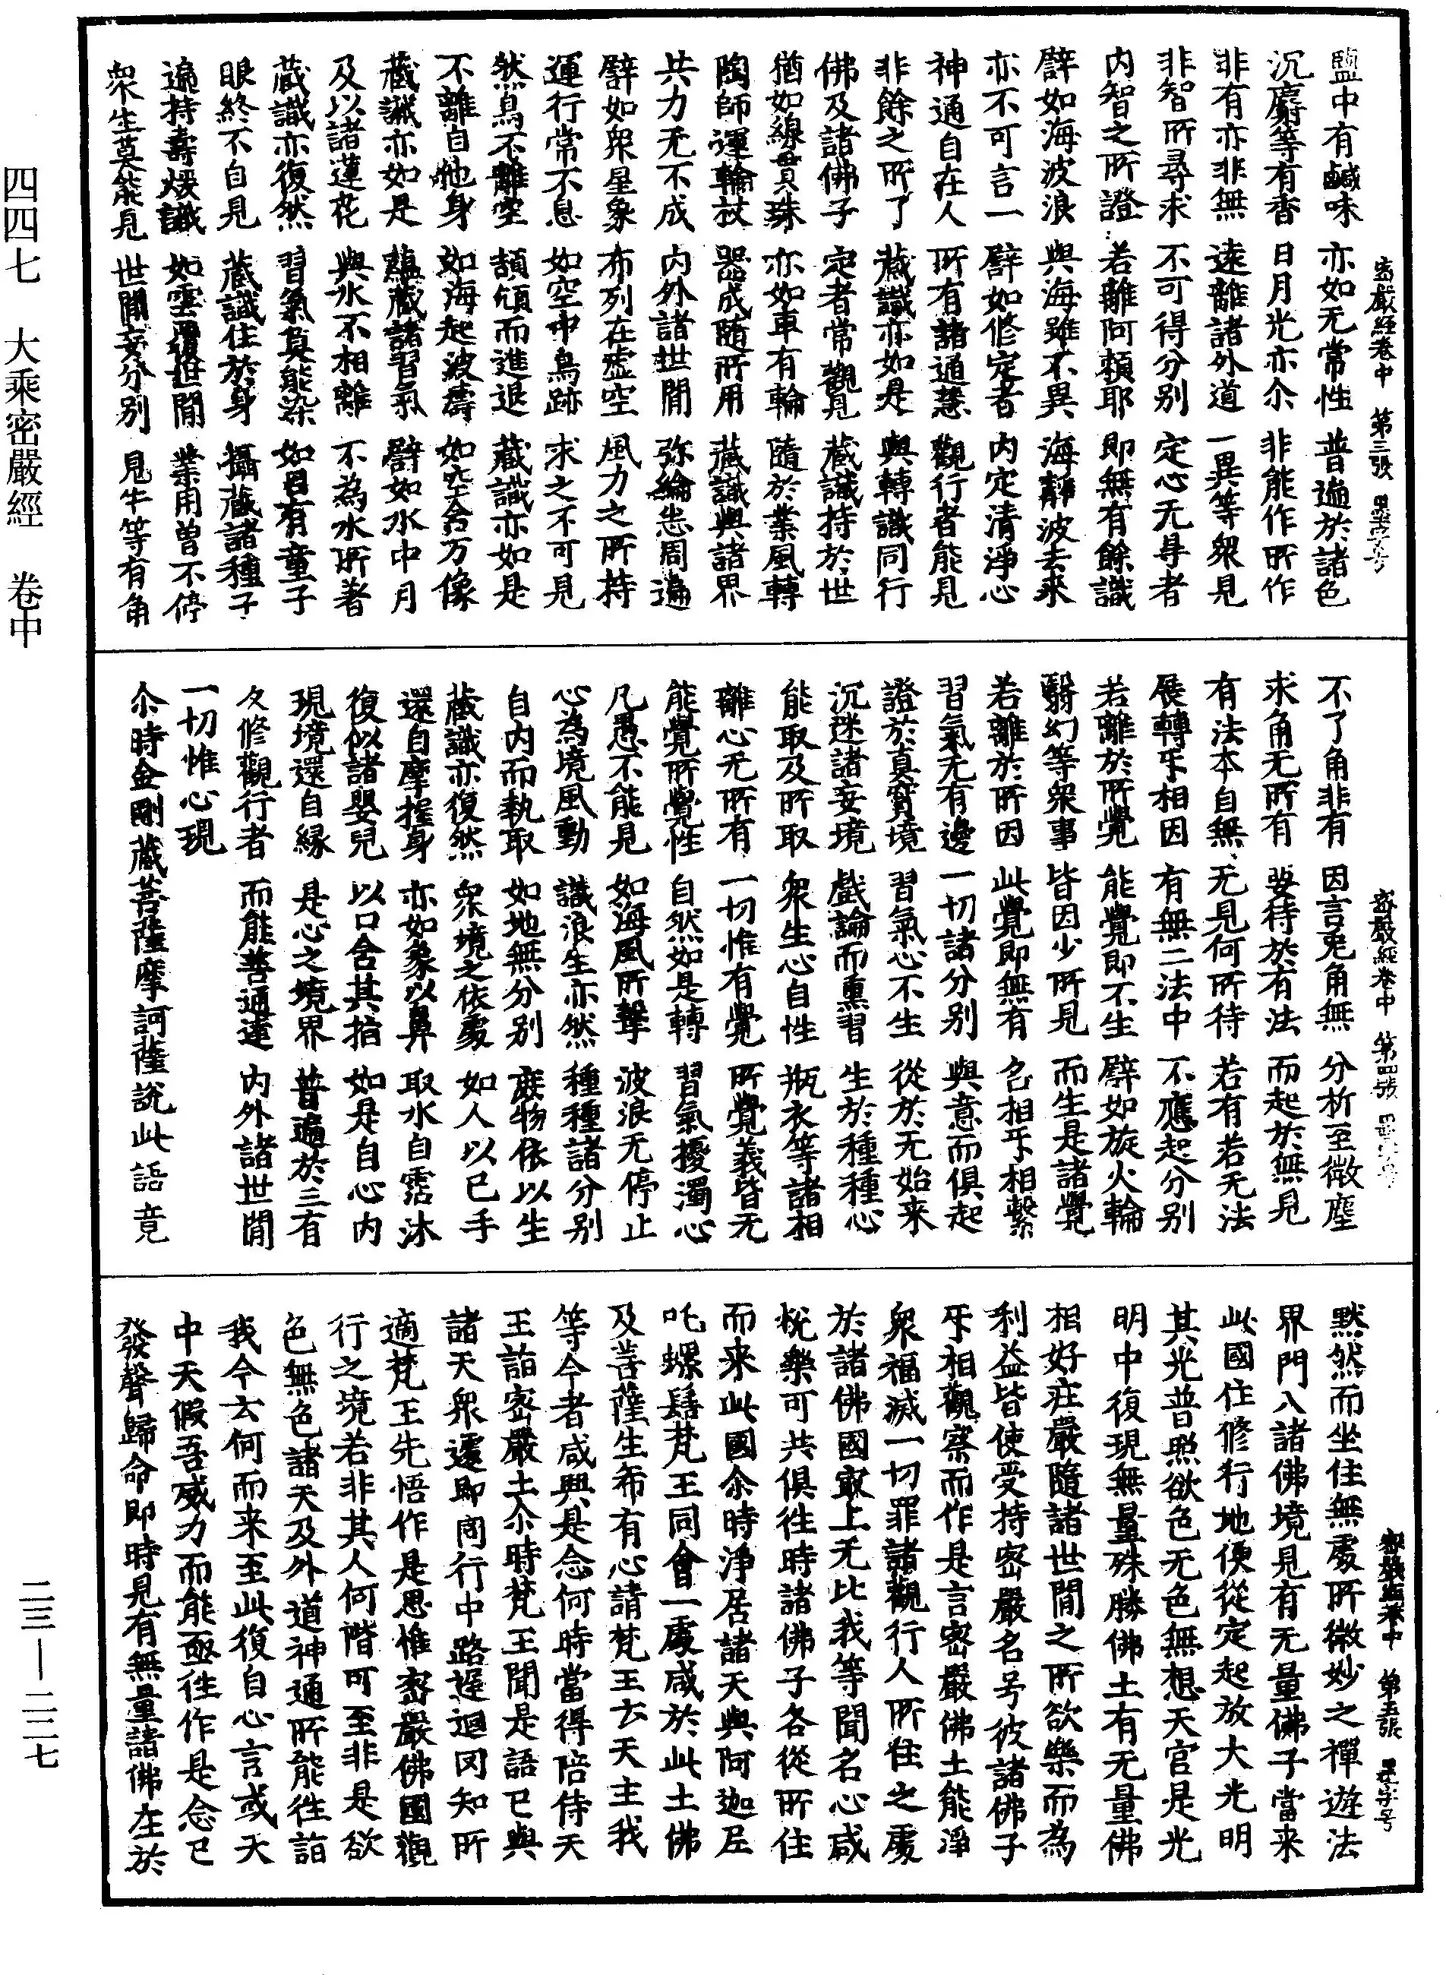 鹽中有鹹味　亦如无常性　普遍於諸色
沉麝等有香　日月光亦尒　非能作所作
非有亦非無　遠離諸外道　一異等衆見
非智所尋求　不可得分別　定心无㝵者
内智之所證　若離阿頼耶　即無有餘識
譬如海波浪　與海雖不異　海靜波去來
亦不可言一　譬如修定者　内定清淨心
神通自在人　所有諸通慧　觀行者能見
非餘之所了　藏識亦如是　與轉識同行
佛及諸佛子　定者常觀見　藏識持於世
猶如線貫珠　亦如車有輪　隨於業風轉
陶師運輪杖　器成隨所用　藏識與諸界
共力无不成　内外諸世間　弥綸悉周遍
譬如衆星象　布列在虚空　風力之所持
運行常不息　如空中鳥跡　求之不可見
然鳥不離空　頡頏而進退　藏識亦如是
不離自他身　如海起波濤　如空含万像
藏識亦如是　蘊藏諸習氣　譬如水中月
及以諸蓮花　與水不相離　不為水所著
藏識亦復然　習氣莫能染　如目有童子
眼終不自見　藏識住於身　攝藏諸種子
遍持壽煖識　如雲覆世間　業用曾不停
衆生莫能見　世間妄分別　見牛等有角
密嚴經卷中　第三張
不了角非有　因言兎角無　分析至微塵
求角无所有　要待於有法　而起於無見
有法本自無　无見何所待　若有若无法
展轉㸦相因　有無二法中　不應起分別
若離於所覺　能覺即不生　譬如旋火輪
翳幻等衆事　皆因少所見　而生是諸覺
若離於所因　此覺即無有　名相㸦相繫
習氣无有邊　一切諸分別　與意而俱起
證於真實境　習氣心不生　從於无始來
沉迷諸妄境　戲論而熏習　生於種種心
能取及所取　衆生心自性　瓶衣等諸相
離心无所有　一切惟有覺　所覺義皆无
能覺所覺性　自然如是轉　習氣擾濁心
凡愚不能見　如海風所擊　波浪无停止
心為境風動　識浪生亦然　種種諸分別
自内而執取　如地無分別　庶物依以生
藏識亦復然　衆境之依處　如人以已手
還自摩捉身　亦如象以鼻　取水自霑沐
復似諸嬰兒　以口含其指　如是自心内
現境還自緣　是心之境界　普遍於三有
久修觀行者　而能善通達　内外諸世間
一切惟心現
尒時金剛藏菩薩摩訶薩說此語竟
密嚴經卷中　第四張
默然而坐住無處所微妙之禪遊法
界門入諸佛境見有无量佛子當来
此國住修行地便從定起放大光明
其光普照欲色无色無想天宫是光
明中復現無量殊勝佛土有无量佛
相好莊嚴隨諸世間之所欲樂而為
利益皆使受持密嚴名号彼諸佛子
㸦相觀察而作是言密嚴佛土能淨
衆福滅一切罪諸觀行人所住之處
於諸佛國寂上无比我等聞名心咸
悅樂可共俱往時諸佛子各從所住
而来此國尒時淨居諸天與阿迦尼
吒螺髻梵王同會一處咸於此土佛
及菩薩生希有心請梵王言天主我
等今者咸興是念何時當得陪侍天
王詣密嚴土尒時梵王聞是語已與
諸天衆遽即同行中路遲迴罔知所
適梵王先悟作是思惟密嚴佛國觀
行之境若非其人何階可至非是欲
色無色諸天及外道神通所能往詣
我今云何而来至此復自心言或天
中天假吾威力而能亟往作是念已
發聲歸命即時見有無量諸佛在於
密嚴經卷中　第五張
四四七　大乘密嚴經　卷中
二三—二二七